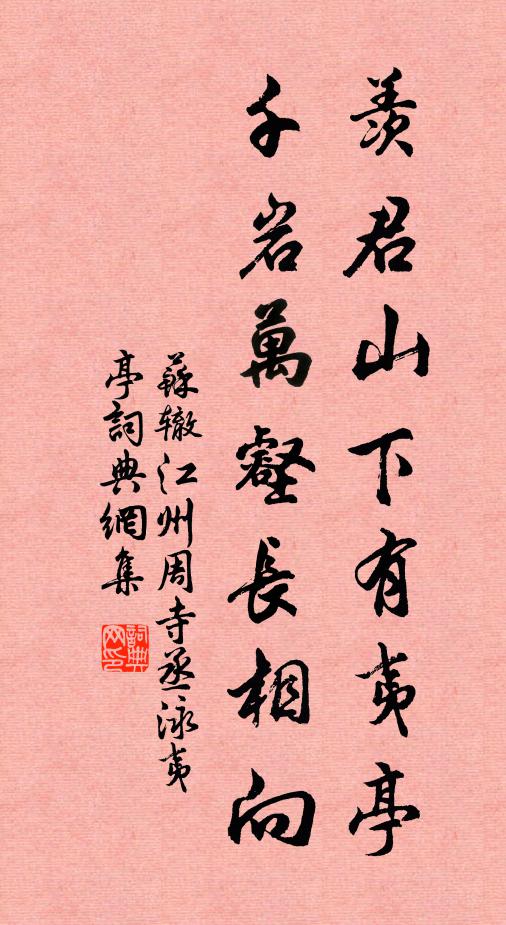 羨君山下有夷亭
千岩萬壑長相向
蘇辙江州周寺丞泳夷
亭詞典網集
詞典网印